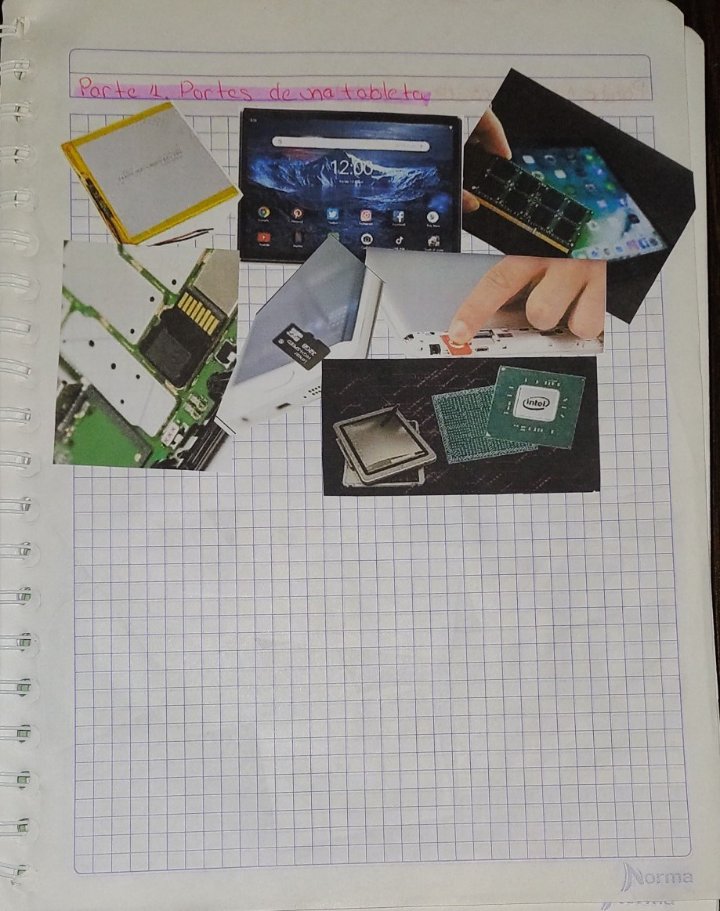 Parte 1. Partes de una tableta
12:00
intel
Norma